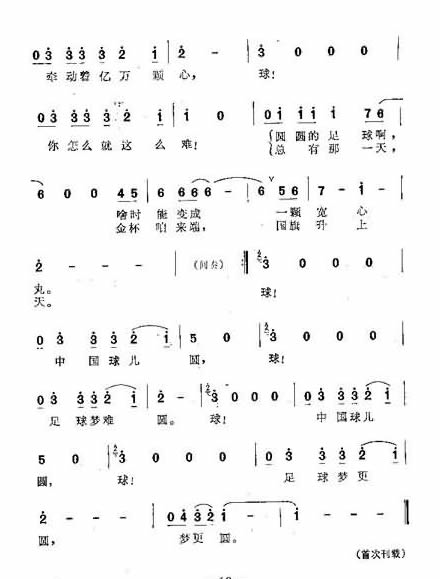 0 3 3 3 3 2 1 | 2 - - | 3 0 0 0 | 0 0 0 0 |
牵动着亿万 颗心， 球！
0 3 3 3 3 2 1 | 1 0 | 0 1 1 1 1 7 6 |
你怎么就这么难！ 圆圆的足球啊，
总有那一天，
6 0 0 4 5 | 6 6 6 6 - | 6 5 6 | 7 - 1 - |
啥时能变成 一颗宽心
金杯咱来端， 国旗升上
2 - - - (间奏) 3 0 0 0 |
丸。 球！
天。
0 3 3 3 2 1 | 5 0 | 3 0 0 0 |
中国球儿 圆， 球！
0 3 3 3 2 1 | 2 - | 3 0 0 0 | 0 3 3 3 2 1 |
足球梦难 圆。 球！ 中国球儿
5 0 | 3 0 0 0 | 0 3 3 3 2 1 |
圆， 球！ 足球梦更
2 - - - | 0 4 3 2 1 | 1 - - - ‖
圆， 梦更圆。
（首次刊载）